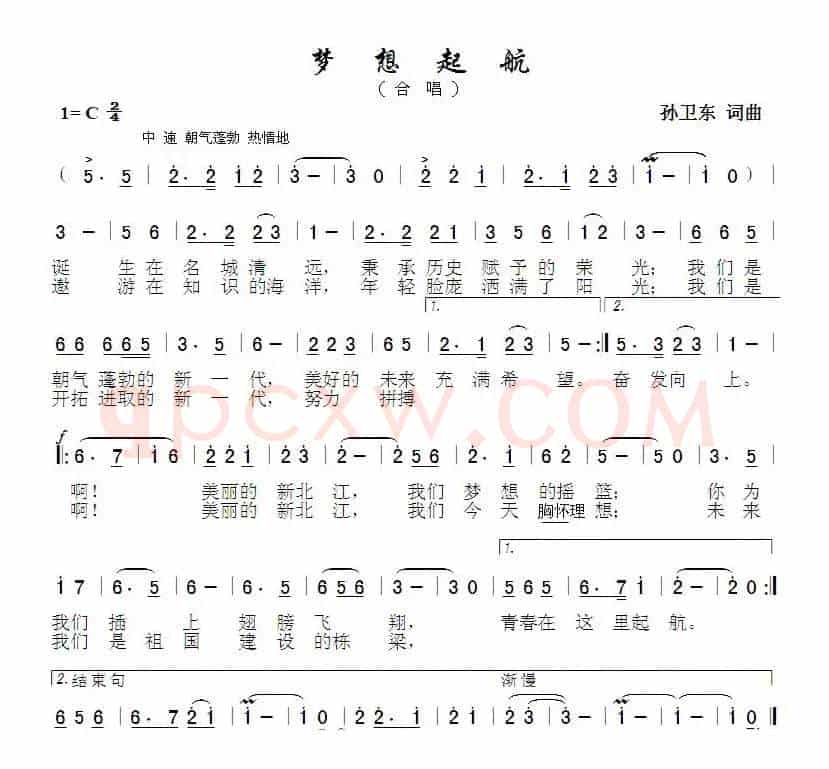 梦 想 起 航
（合 唱）
1= C 2/4
孙卫东 词曲
中 速 朝气蓬勃 热情地
（ 5 . 5 | 2 . 2 1 2 | 3 — | 3 0 | 2 2 1 | 2 . 1 2 3 | 1 — | 1 0 ）|
3 — | 5 6 | 2 . 2 2 3 | 1 — | 2 . 2 2 1 | 5 . 5 2 3 | 1 2 | 3 — | 6 6 5 |
诞 生在 名 城 清 远， 秉 承 历史 赋 予 的 荣 光； 我们 是
遨 游在 知 识 的海 洋， 年 轻 脸庞 洒 满 了 阳 光； 我们 是
1. 2.
6 6 6 6 5 | 3 . 5 | 6 — | 2 2 3 | 6 5 | 2 . 1 2 3 | 5 — :| 5 . 3 2 3 | 1 — |
朝气 蓬勃的 新 一 代， 美好的 未来 充 满 希 望。 奋 发向 上。
开拓 进取的 新 一 代， 努力 拼搏
f
|: 6 . 7 | 1 6 | 2 2 1 | 2 3 | 2 — | 2 5 6 | 2 . 1 | 6 2 | 5 — | 5 0 | 3 . 5 |
啊！ 美丽的 新北 江， 我们 梦 想 的摇 篮； 你 为
啊！ 美丽的 新北 江， 我们 今 天 胸怀理 想； 未 来
1.
1 7 | 6 . 5 | 6 — | 2 . 1 | 6 5 6 | 3 — | 3 0 | 5 6 5 | 6 . 7 1 | 2 — | 2 0 :|
我们 插 上 翅 膀 飞 翔， 青春在 这 里起 航。
我们 是 祖 国 建 设 的栋 梁，
2. 结 束 句
渐 慢
6 5 6 | 5 . 6 2 1 | 1 — | 1 0 | 2 2 . 1 | 2 1 2 | 3 . 3 | 1 — | 1 — | 1 0 ‖
qpcxw.COM